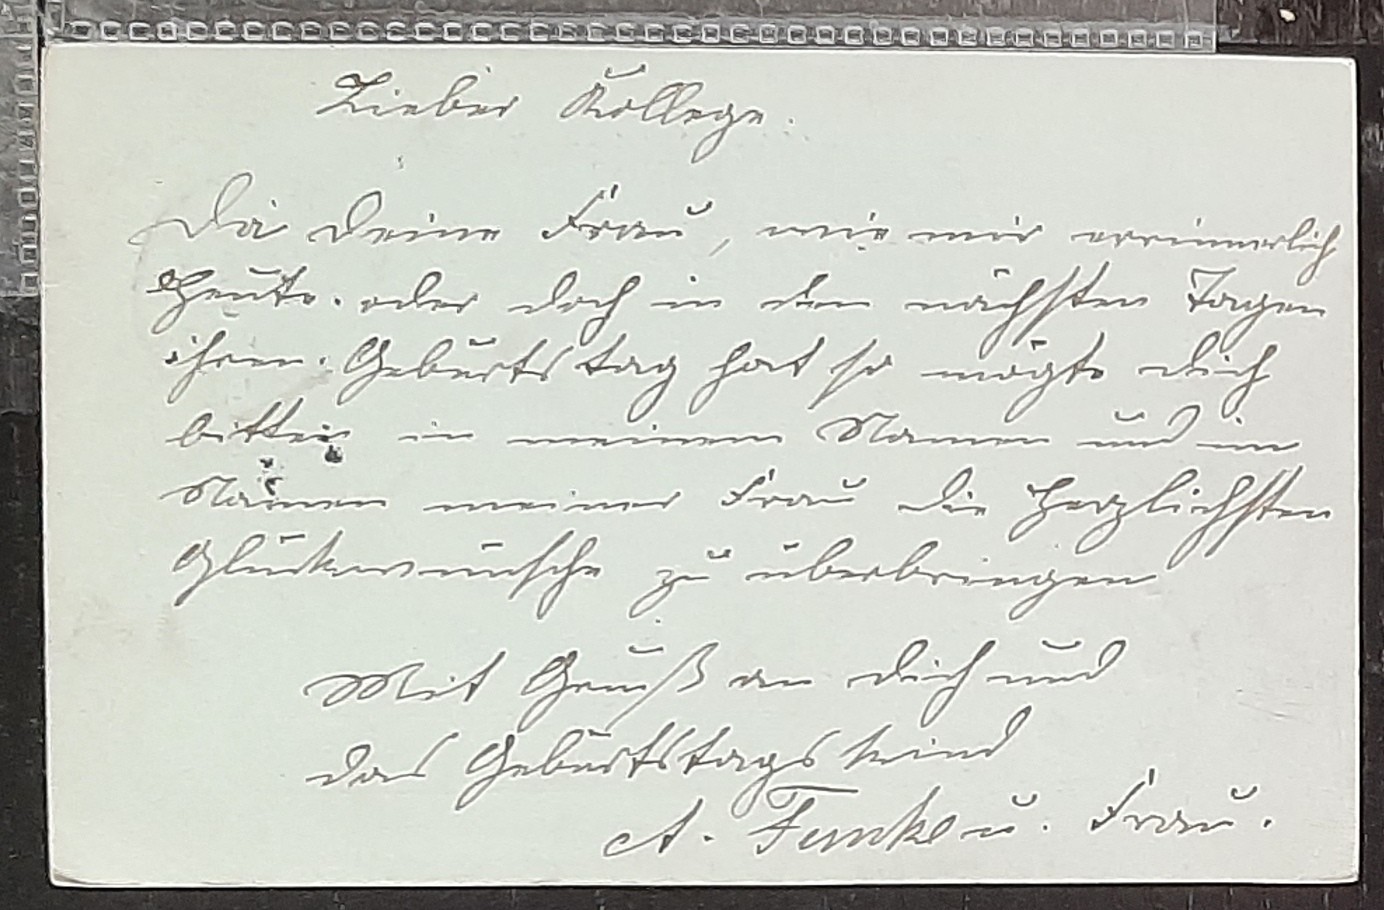 Lieber Kollege.
Da deine Frau, wie mir errinnerlich
Heute. oder doch in den nächsten Tagen
ihren. Geburtstag hat so mögte dich
bitten in meinem Namen und im
Namen meiner Frau die Herzlichsten
Glückwunsche zu überbringen
Mit Gruß an dich und
das Geburtstagskind
A. Funke u. Frau.